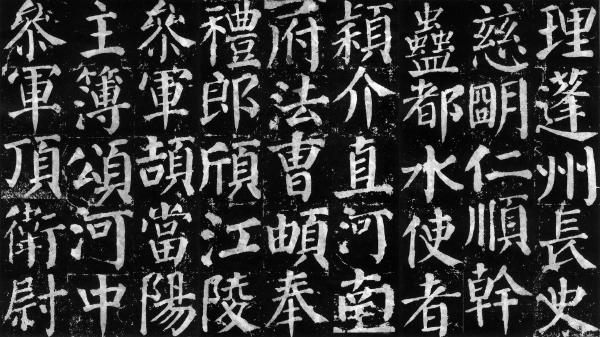 理蓬州長史
慈朙仁順幹
蠱都水使者
穎介直河南
府法曹頔奉
禮郎頎江陵
參軍頡當陽
主簿頌河中
參軍頂衛尉